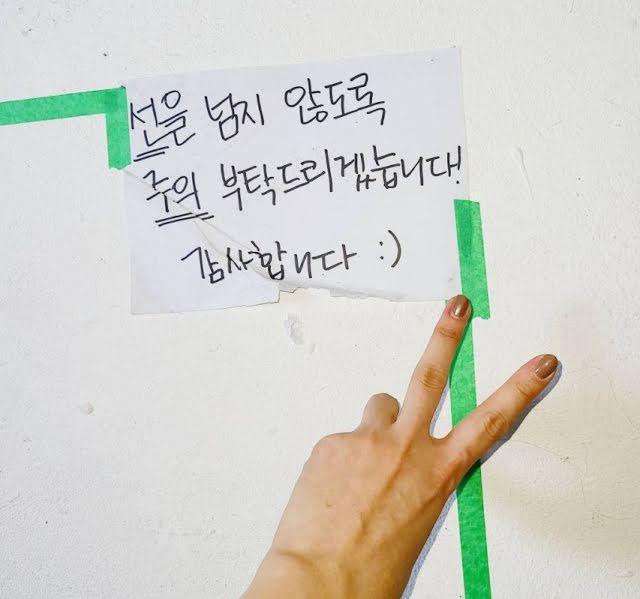 선을 넘지 않도록
주의 부탁드리겠습니다!
감사합니다 :)